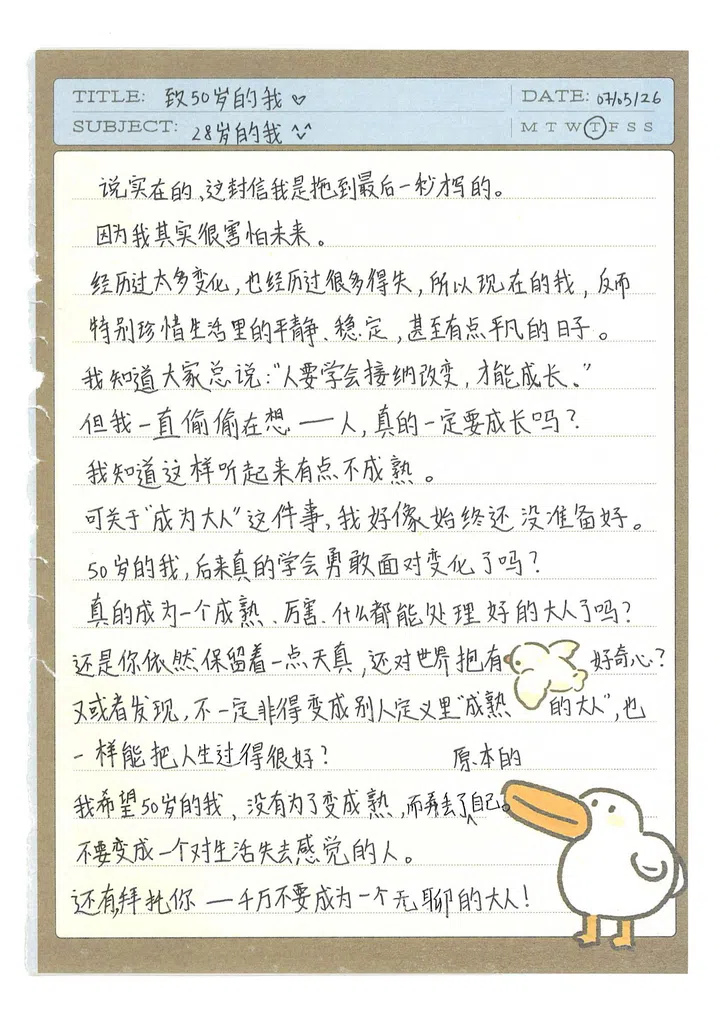 TITLE: 致50岁的我 ♡
DATE: 07/05/26
SUBJECT: 28岁的我
M T W T F S S
说实在的、这封信我是拖到最后一秒才写的。
因为我其实很害怕未来。
经历过太多变化,也经历过很多得失,所以现在的我,反而
特别珍惜生活里的平静、稳定,甚至有点平凡的日子。
我知道大家总说:“人要学会接纳改变,才能成长。”
但我一直偷偷在想——人,真的一定要成长吗?
我知道这样听起来有点不成熟。
可关于“成为大人”这件事,我好像始终还没准备好。
50岁的我,后来真的学会勇敢面对变化了吗?
真的成为一个成熟、厉害、什么都能处理好的大人了吗?
还是你依然保留着一点天真,还对世界抱有好奇心?
又或者发现,不一定非得变成别人定义里“成熟的大人”,也
一样能把人生过得很好?
原本的
我希望50岁的我,没有为了变成熟,而弄丢了自己。
不要变成一个对生活失去感觉的人。
还有,拜托你——千万不要成为一个无聊的大人!